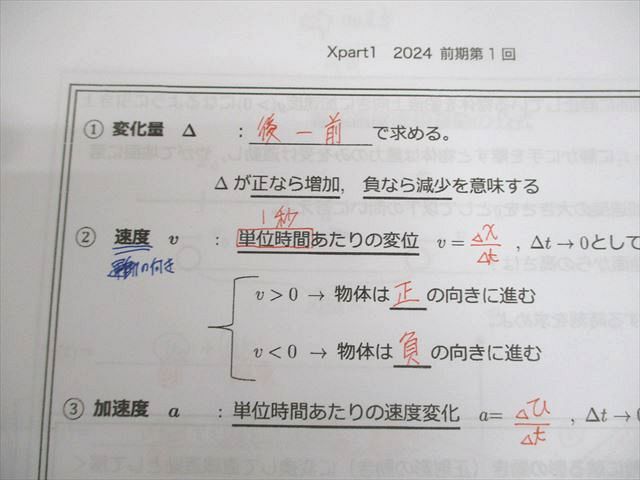 Xpart1 2024 前期第1回
① 変化量 Δ : 後 − 前 で求める。
Δ が正なら増加, 負なら減少を意味する
1秒
② 速度 v : 単位時間あたりの変位 v = Δx/Δt , Δt → 0として
運動の向き
v > 0 → 物体は 正 の向きに進む
v < 0 → 物体は 負 の向きに進む
③ 加速度 a : 単位時間あたりの速度変化 a= Δv/Δt , Δt → 0